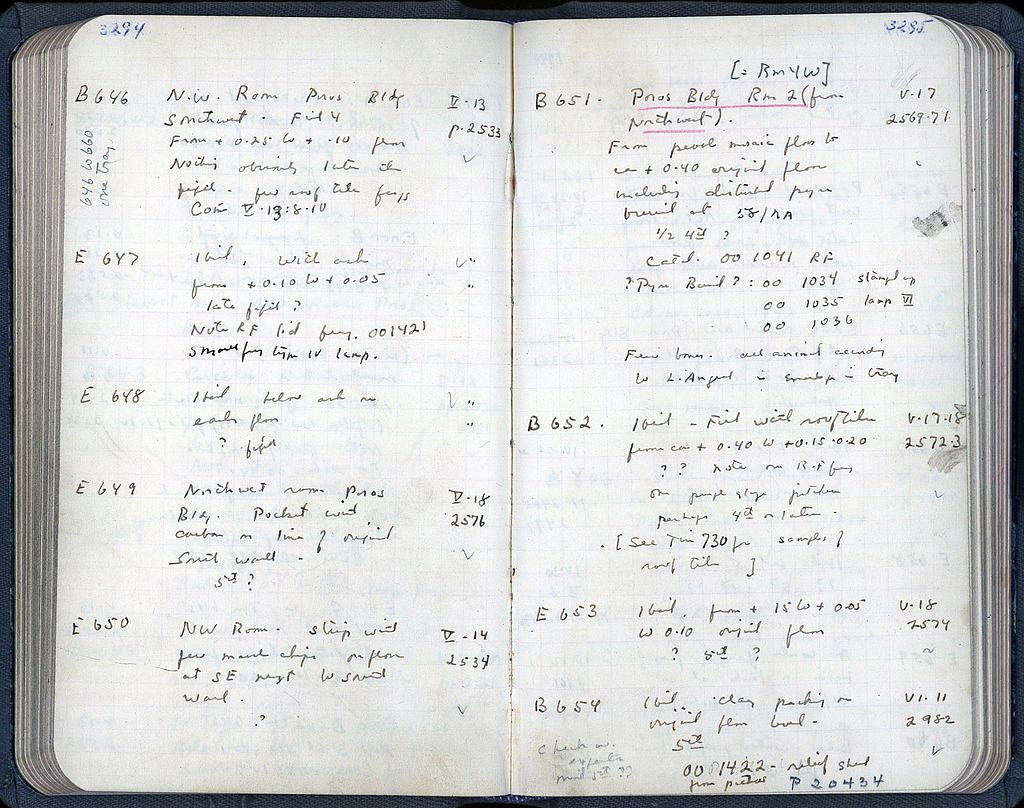 3294
B 646 N.W. Room Poros Bldg V·13
Southwest. Fill 4 p.2533
From + 0.25 to + .10 floor
Nothing obviously late
few roof tile frags
Coin V·13:8·10
646 to 660
one tray
E 647 Ibid, with ash
from +0.10 to +0.05
late ?
Note RF lid frag. 001421
Small frag type IV lamp.
E 648 Ibid below ash on
earth floor
?
E 649 Northwest room Poros V·18
Bldg. Pocket with 2576
carbon on line of original
South wall.
5th ?
E 650 NW Room. Strip with V·14
few marble chips on floor 2534
at SE next to South
wall.
?
3295
[= Rm 4W]
B 651. Poros Bldg Rm 2 (from V·17
Northwest). 2569·71
From pebble mosaic floor to
ca + 0.40 original floor
including disturbed pyre
burial at 58/ΛΑ
1/2 4th ?
Cat'd. 00 1041 RF
? Pyre Burial ? : 00 1034
00 1035 lamp VI
00 1036
Few bones. all animal according
to L. Angel in envelope in tray
B 652. Ibid - Fill with roof tiles V·17·18
from ca + 0.40 to +0.15·0.20 2572·3
? ? note on B.F frag
perhaps 4th or later.
[See Tin 730 for samples of
roof tiles ]
E 653 Ibid, from + 15 to + 0.05 V·18
to 0.10 original floor 2574
? 5th ?
B 654 Ibid. clay packing on VI·11
original floor level. 2982
5th
Check w.
experts
mid 5th ??
00 1422 - relief
from P 20434